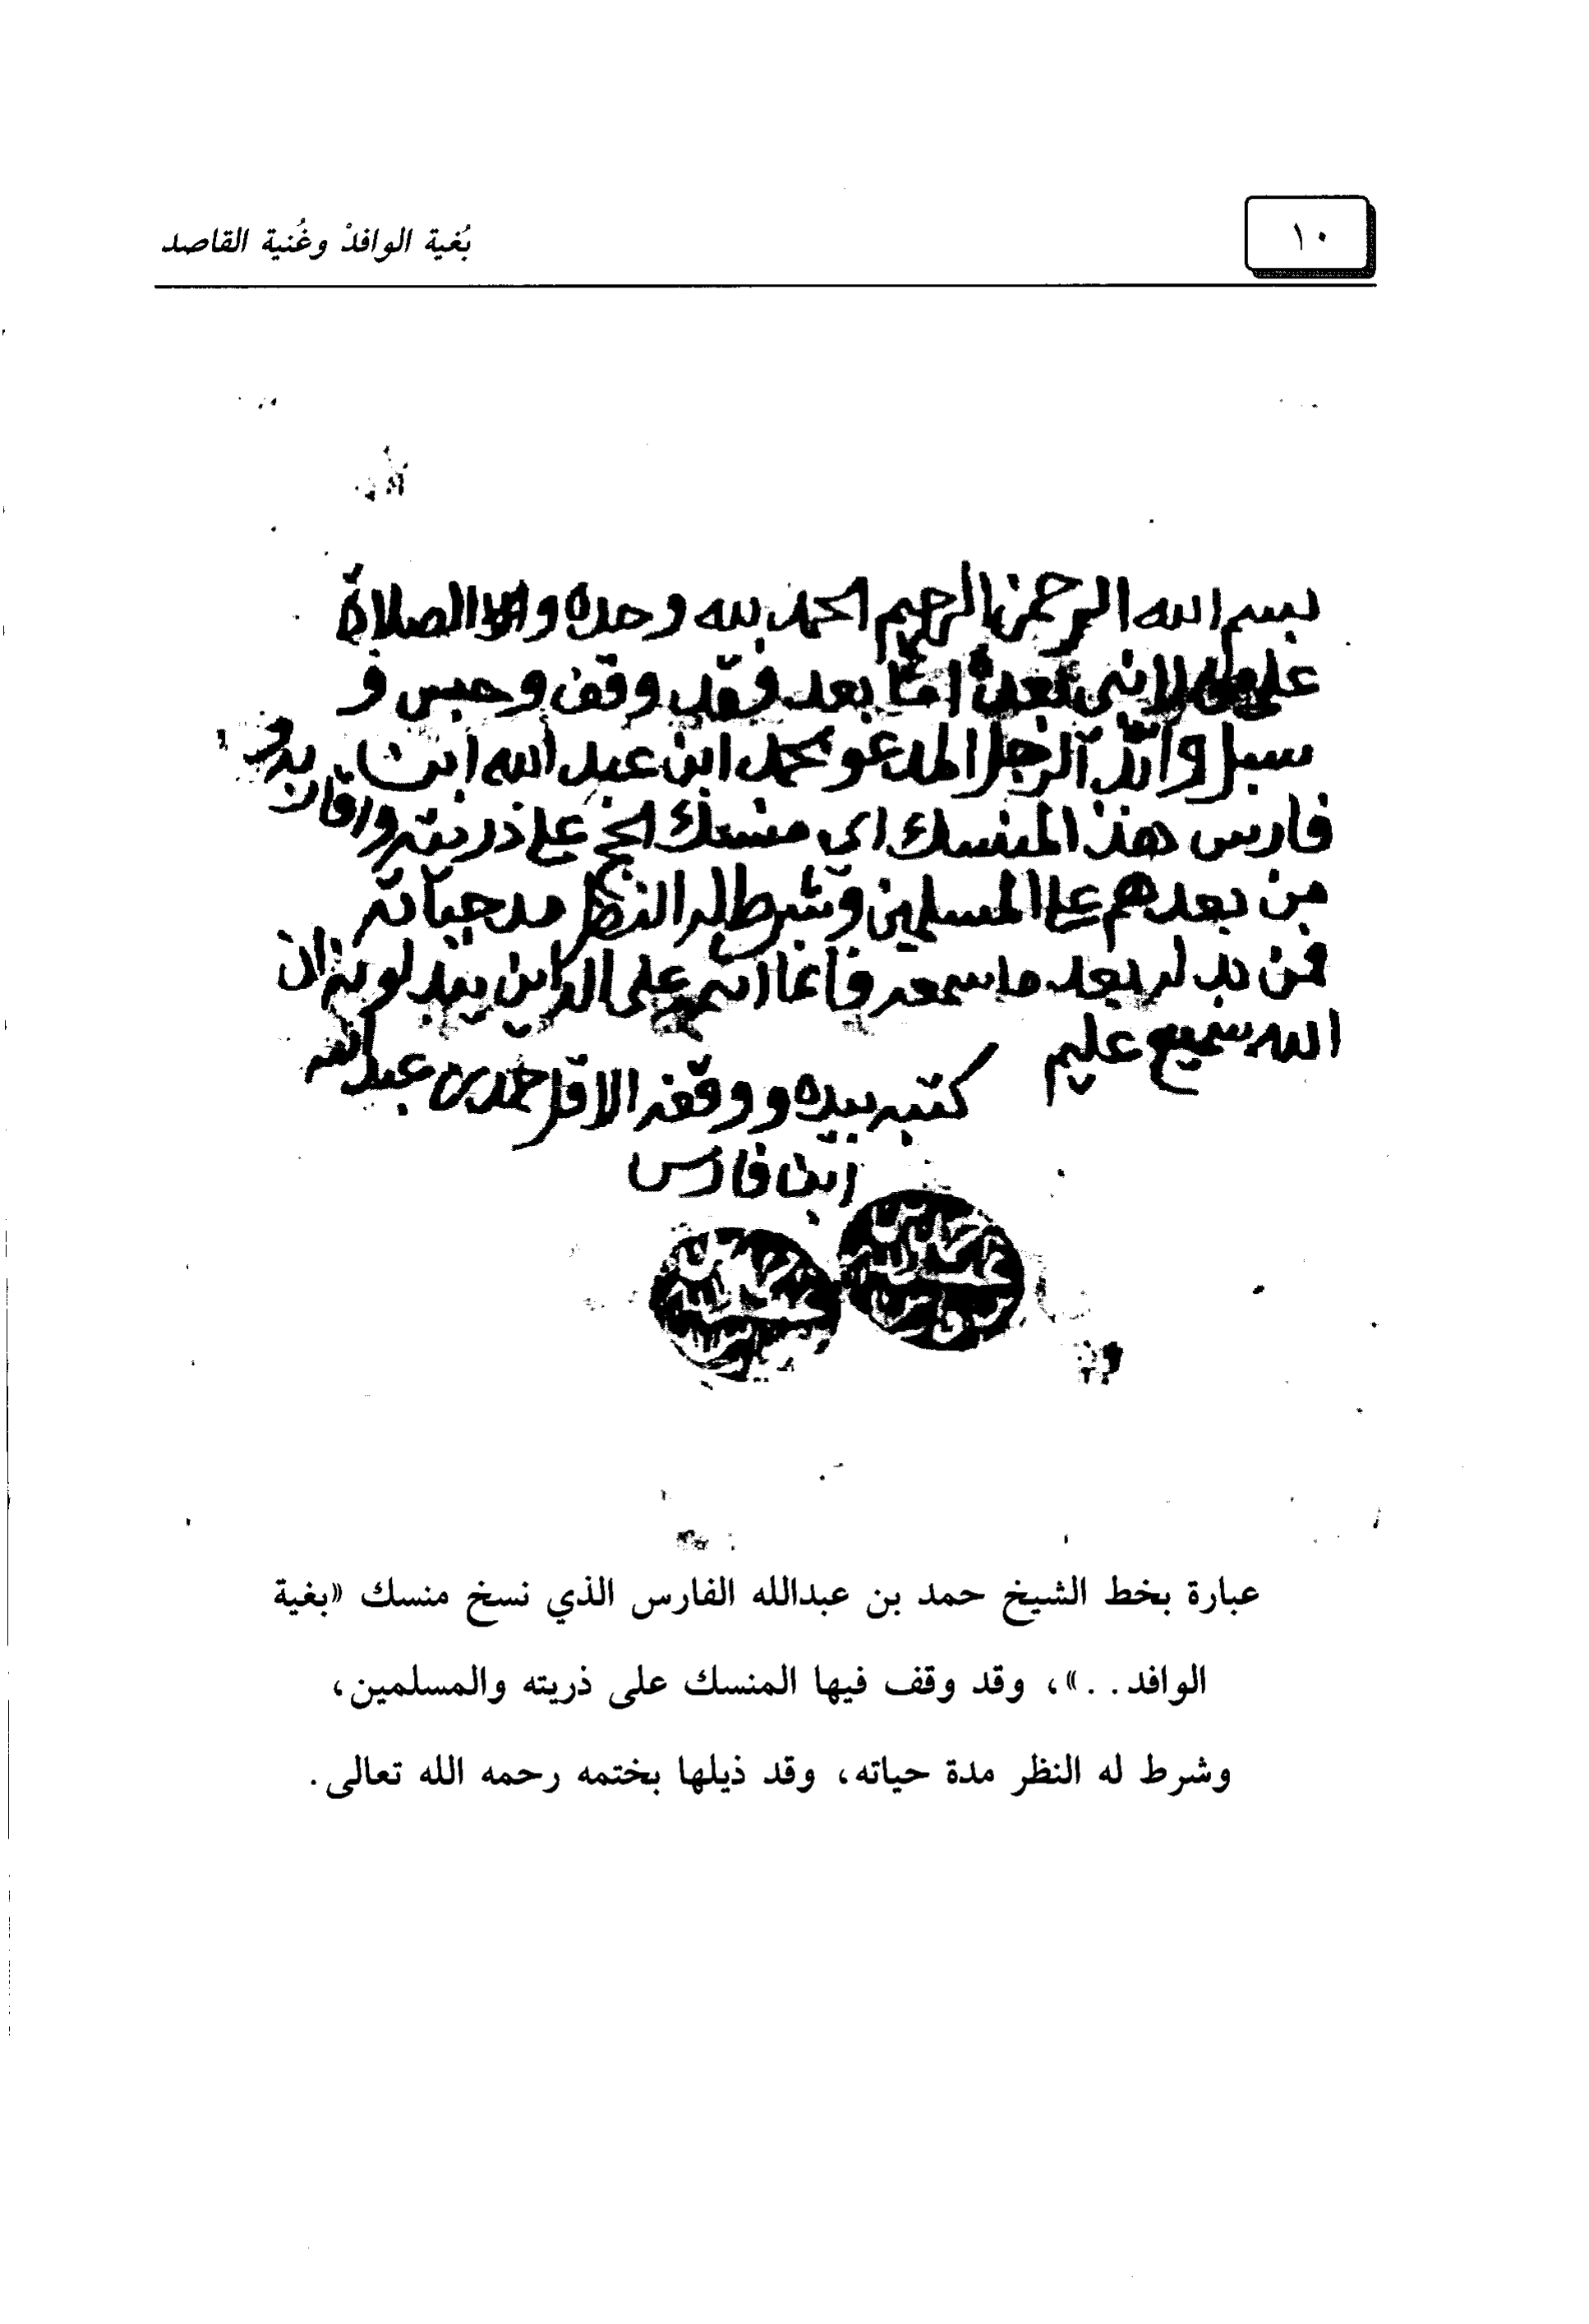 ١٠
بُغية الوافدْ وغُنية القاصد
بسم الله الرحمن الرحيم الحمد لله وحده والصلاة
على من لا نبي بعده اما بعد فقد وقف وحبس و
سبل وابد الرجل المدعو بحمد ابن عبد الله ابن
فارس هذا المنسك اي منسك الحج على ذريته
من بعدهم على المسلمين وشرط له النظر مد حياته
فمن بدله بعد ما سمعه فانما اثمه على الذاين يبدلونه ان
الله سميع عليم
كتبه بيده ووقفه الاقل حمد بن عبد الله
ابن فارس
عبارة بخط الشيخ حمد بن عبدالله الفارس الذي نسخ منسك «بغية
الوافد. .»، وقد وقف فيها المنسك على ذريته والمسلمين،
وشرط له النظر مدة حياته، وقد ذيلها بختمه رحمه الله تعالى.